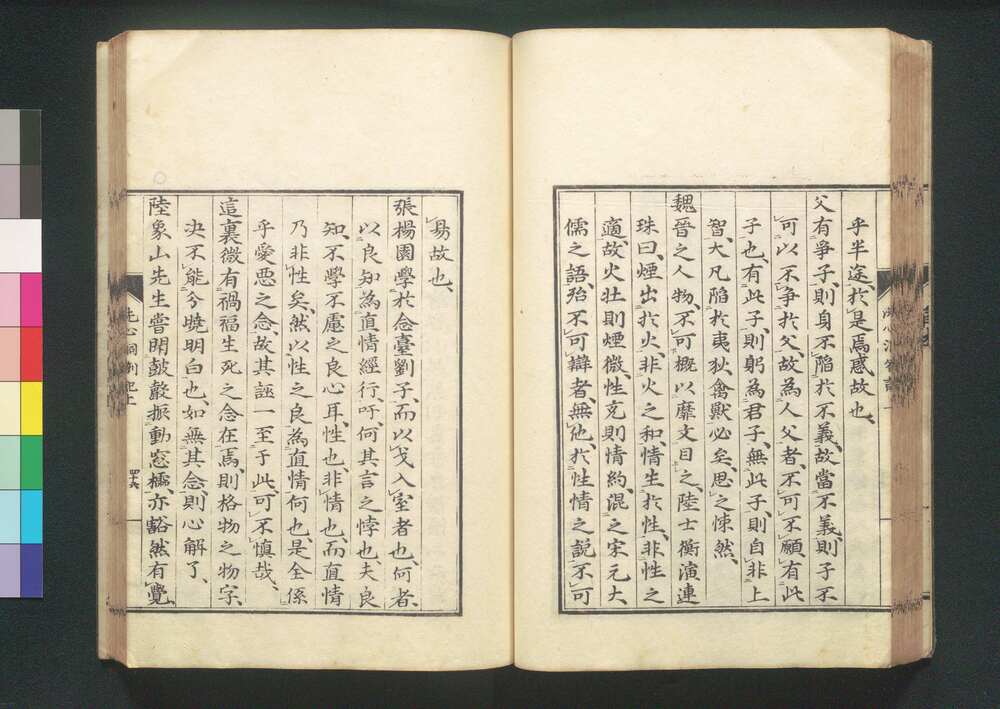 乎半途、於是焉惑故也、
父有爭子、則身不陷於不義、故當不義、則子不
可以不爭於父、故為人父者、不可不願、有此
子也、有此子、則躬為君子、無此子、則自非上
智、大凡陷於夷狄禽獸必矣、思之悚然、
魏晉之人物、不可概以靡文目之、陸士衡演連
珠曰、煙出於火、非火之和、情生於性、非性之
適、故火壯則煙微、性充則情約、混之宋元大
儒之語、殆不可辯者、無他、於性情之說、不可
易故也、
張楊園學於念臺劉子、而以戈入室者也、何者、
以良知為直情經行、吁、何其言之悖也、夫良
知、不學不慮之良心耳、性也、非情也、而直情
乃非性矣、然以性之良為直情何也、是全係
乎愛惡之念、故其誣一至于此、可不慎哉、
這裏微有禍福生死之念在焉、則格物之物字、
決不能分曉明白也、如無其念、則心解了、
陸象山先生嘗聞鼓聲振動窓櫺、亦豁然有覺、
四十六